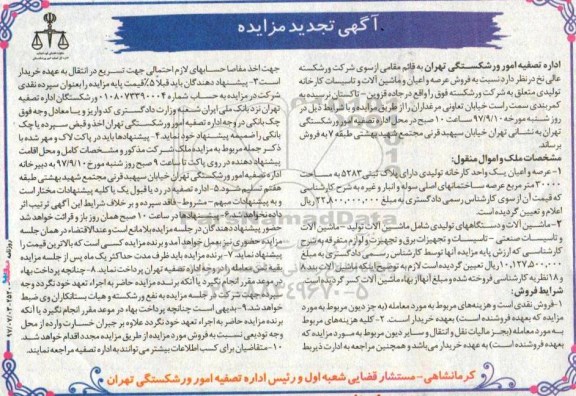 آگهی تجدید مزایده
اداره تصفیه امور ورشکستگی تهران به قائم مقامی از سوی شرکت ورشکسته
عالی نخ در نظر دارد نسبت به فروش عرصه و اعیان و ماشین آلات و تاسیسات کارخانه
تولیدی متعلق به شرکت ورشکسته فوق را واقع در جاده قزوین - تاکستان نرسیده به
کمربندی سمت راست خیابان تعاونی مرغداران را از طریق مزایده و با شرایط ذیل در
روز شنبه مورخه ۹۷/۹/۱۰ ساعت ۱۰ صبح در محل اداره تصفیه امور ورشکستگی
تهران به نشانی تهران خیابان سپهبد قرنی مجتمع شهید بهشتی طبقه ۷ به فروش
برساند.
مشخصات ملک و اموال منقول:
۱- عرصه و اعیان یک واحد کارخانه تولیدی دارای پلاک ثبتی ۵۲۸۳ به مساحت
۳۰۰۰۰ متر مربع عرصه ساختمانهای اصلی سوله و انبار و غیره به شرح کارشناسی
که قیمت آن از سوی کارشناس رسمی دادگستری به مبلغ ۲۲,۸۰۰,۰۰۰,۰۰۰ ریال
اعلام و تعیین گردیده است.
۲- ماشین آلات و دستگاههای تولیدی شامل ماشین آلات تولید - ماشین آلات
و تاسیسات صنعتی - تاسیسات و تجهیزات برق و تجهیزات و لوازم متفرقه به شرح
کارشناسی که ارزش پایه مزایده آنها توسط کارشناس رسمی دادگستری به مبلغ
۱۰,۱۲۷,۵۰۰,۰۰۰ ریال تعیین گردیده است لازم به توضیح اینکه ماشین آلات بند ۸
و ۱۸ نظریه کارشناسی فروخته شده و مبلغ آنها از بهاء ماشین آلات کسر گردیده است.
شرایط فروش:
۱- فروش نقدی است و هزینه‌های مربوط به مورد معامله (به جز دیون مربوط به مورد
مزایده که بعهده فروشنده است) بعهده خریدار است. ۲- کلیه هزینه‌های مربوط
به مورد معامله (بجز مالیات نقل و انتقال و سایر دیون مربوط به مورد مزایده که
بعهده فروشنده است) به عهده خریدار می‌باشد و همچنین مراجعه به ادارت ذیربط
جهت اخذ مفاصا حسابهای لازم احتمالی جهت تسریع در انتقال به عهده خریدار
است ۳- پیشنهاد دهندگان باید قبلا ۵٪ قیمت پایه مزایده را بعنوان سپرده نقدی
شرکت در مزایده به حساب شماره ۰۱۰۸۰۷۳۳۹۰۰۰۴ ورشکستگان اداره تصفیه
تهران نزد بانک ملی ایران شعبه وزارت دادگستری کد واریز و یا معادل وجه فوق
چک بانکی در وجه اداره تصفیه امور ورشکستگی تهران اخذ و فیش سپرده یا چک
بانکی را ضمیمه پیشنهاد خود نماید ۴- پیشنهادها باید در پاکت لاک و مهر شده با
ذکر جمله مربوط به مزایده ملک شرکت مذکور و مشخصات کامل و محل اقامت
پیشنهاد دهنده در روی پاکت تا ساعت ۹ صبح روز شنبه مورخ ۹۷/۹/۱۰ به دبیرخانه
اداره تصفیه امور ورشکستگی تهران خیابان سپهبد قرنی مجتمع شهید بهشتی طبقه
هفتم تسلیم شود ۵- اداره تصفیه در رد یا قبول یک یا کلیه پیشنهادات مختار است
و به پیشنهادات مبهم - مشروط - فاقد سپرده و بر خلاف شرایط این آگهی ترتیب اثر
داده نخواهد شد ۶- پیشنهادها در ساعت ۱۰ صبح همان روز باز و قرائت خواهد شد
حضور پیشنهاد دهندگان در جلسه مزایده بلامانع است و عندالاقتضاء در همان جلسه
مزایده حضوری نیز بعمل خواهد آمد و برنده مزایده کسی است که بالاترین قیمت را
پیشنهاد نماید. ۷- برنده مزایده باید ظرف مدت حداکثر یک ماه پس از جلسه مزایده
بقیه ثمن معامله را در وجه اداره تصفیه تهران پرداخت نماید. ۸- چنانچه پرداخت بهاء
در موعد مقرر انجام نگیرد یا آنکه برنده مزایده حاضر به اجراء تعهد خود نگردد وجه
تودیعی بابت شرکت در جلسه مزایده به نفع ورشکسته و هیات بستانکاران وی ضبط
خواهد شد ۹- بدیهی است چنانچه پرداخت بهاء در موعد مقرر انجام نگیرد یا آنکه
برنده مزایده حاضر به اجراء تعهد خود نگردد علاوه بر جبران خسارت وارده از محل
وجه تودیعی نسبت به فروش مورد مزایده از طریق مزایده مجدد اقدام خواهد شد.
۱۰- متقاضیان برای کسب اطلاعات بیشتر می‌توانند به اداره تصفیه مراجعه نمایند.
کرمانشاهی - مستشار قضایی شعبه اول و رئیس اداره تصفیه امور ورشکستگی تهران
ParsNamadData